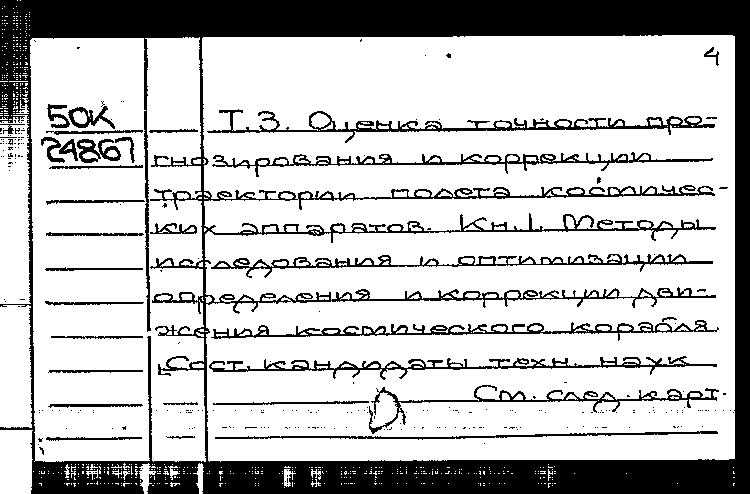 4
50К
24867
Т.3. Оценка точности про-
гнозирования и коррекции
траектории полета космичес-
ких аппаратов. Кн.1. Методы
исследования и оптимизации
определения и коррекции дви-
жения космического корабля.
[Сост. кандидаты техн. наук
См. след. карт.